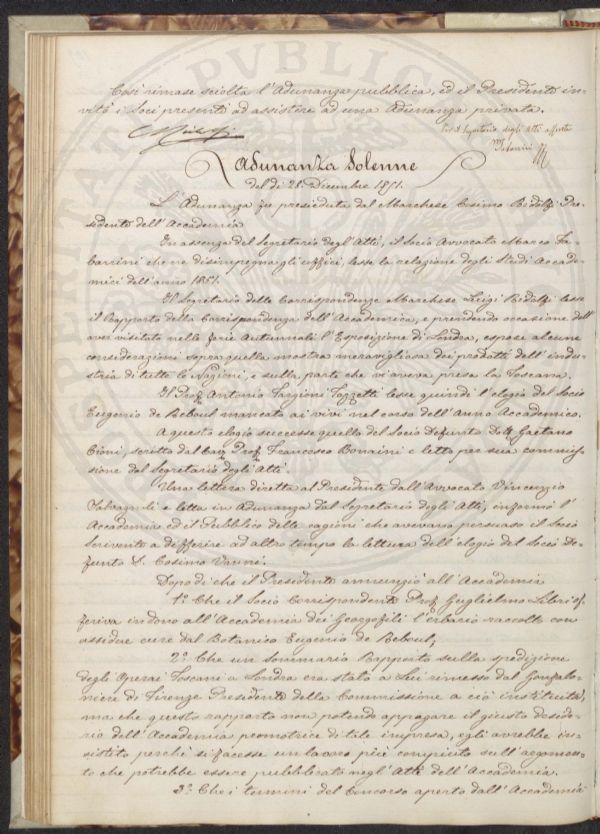 Così rimase sciolta l'Adunanza pubblica, ed il Presidente in-
vitò i Soci presenti ad assistere ad una Adunanza privata.
Per il Segretario degli Atti assente
M. Tabarrini
Adunanza Solenne
del dì 28. Dicembre 1851.
L'Adunanza fu presieduta dal Marchese Cosimo Ridolfi Pre-
sidente dell'Accademia
In assenza del Segretario degl'Atti, il Socio Avvocato Marco Ta-
barrini che ne disimpegna gli uffici, lesse la relazione degli Studi Accade-
mici dell'anno 1851.
Il Segretario delle Corrispondenze Marchese Luigi Ridolfi lesse
il Rapporto della Corrispondenza dell'Accademica, e prendendo occasione dall'
aver visitata nelle ferie Autunnali l'Esposizione di Londra, espose alcune
considerazioni sopra quella mostra meravigliosa dei prodotti dell'indu-
stria di tutte le Nazioni, e sulla parte che vi aveva presa la Toscana.
Il Prof. Antonio Targioni Tozzetti lesse quindi l'elogio del Socio
Eugenio de Reboul mancato ai vivi nel corso dell'Anno Accademico.
A questo elogio successe quello del Socio Defunto Dott. Gaetano
Cioni, scritto dal Cav. Prof. Francesco Bonaini e letto per sua commis-
sione dal Segretario degli Atti.
Una lettera diretta al Presidente dall'Avvocato Vincenzio
Salvagnoli e letta in Adunanza dal Segretario degli Atti, informò l'
Accademia ed il Pubblico delle cagioni che avevano persuaso il Socio
scrivente a differire ad altro tempo la lettura dell'elogio del Socio De-
funto S. Cosimo Vanni.
Dopo di che il Presidente annunziò all'Accademia
1.° Che il Socio Corrispondente Prof. Guglielmo Libri of-
feriva in dono all'Accademia dei Georgofili l'erbario raccolto con
assidue cure dal Botanico Eugenio de Reboul;
2.° Che un Sommario Rapporto sulla spedizione
degli Operai Toscani a Londra era stato a Lui rimesso dal Gonfalo-
niere di Firenze Presidente della Commissione a ciò instituita,
ma che questo rapporto non potendo appagare il giusto deside-
rio dell'Accademia promotrice di tale impresa, egli avrebbe in-
sistito perchè si facesse un lavoro più compiuto sull'argomen-
to che potrebbe essere pubblicato negl'Atti dell'Accademia.
3.° Che i termini del Concorso aperto dall'Accademia